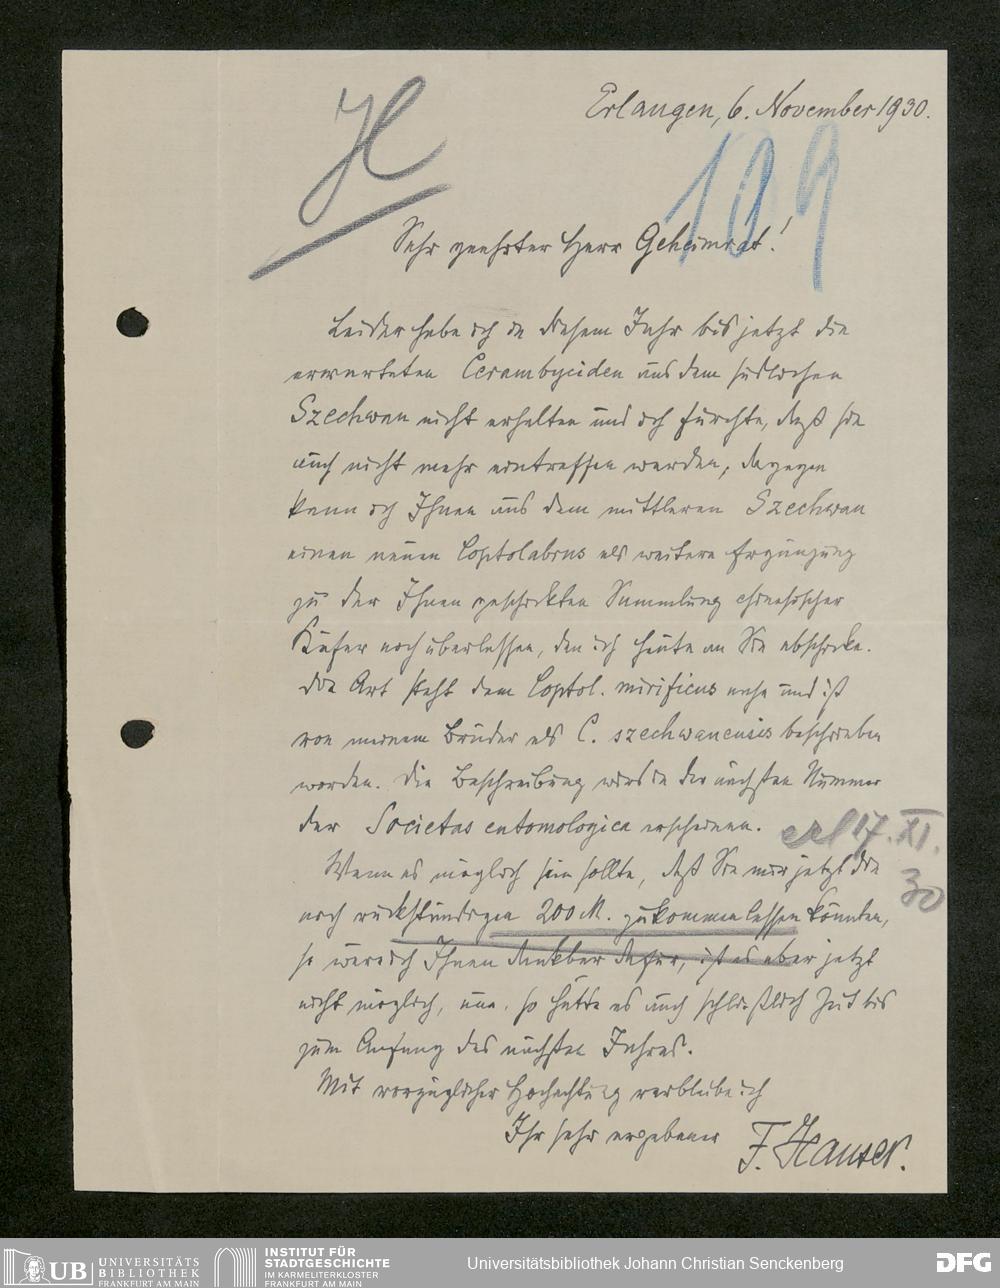 H
Erlangen, 6. November 1930.
109
Sehr geehrter Herr Geheimrat!
Leider habe ich in diesem Jahr bis jetzt die
erwarteten Cerambyciden aus dem südlichen
Szechwan nicht erhalten und ich fürchte, daß sie
auch nicht mehr eintreffen werden; dagegen
kann ich Ihnen aus dem mittleren Szechwan
einen neuen Coptolabrus als weitere Ergänzung
zu der Ihnen geschickten Sammlung chinesischer
Käfer noch überlassen, den ich heute an Sie abschicke.
Die Art steht dem Coptol. mirificus nahe und ist
von meinem Bruder als C. szechwanensis beschrieben
worden. Die Beschreibung wird in der nächsten Nummer
der Societas entomologica erscheinen.
erl 17. XI.
30
Wenn es möglich sein sollte, daß Sie mir jetzt die
noch rückständigen 200 M. zukommen lassen könnten,
so wäre ich Ihnen dankbar dafür, ist es aber jetzt
nicht möglich, nun, so hätte es auch schließlich Zeit bis
zum Anfang des nächsten Jahres.
Mit vorzüglicher Hochachtung verbleibe ich
Ihr sehr ergebener
F. Hauser.
UB UNIVERSITÄTS
BIBLIOTHEK
FRANKFURT AM MAIN
INSTITUT FÜR
STADTGESCHICHTE
IM KARMELITERKLOSTER
FRANKFURT AM MAIN
Universitätsbibliothek Johann Christian Senckenberg
DFG